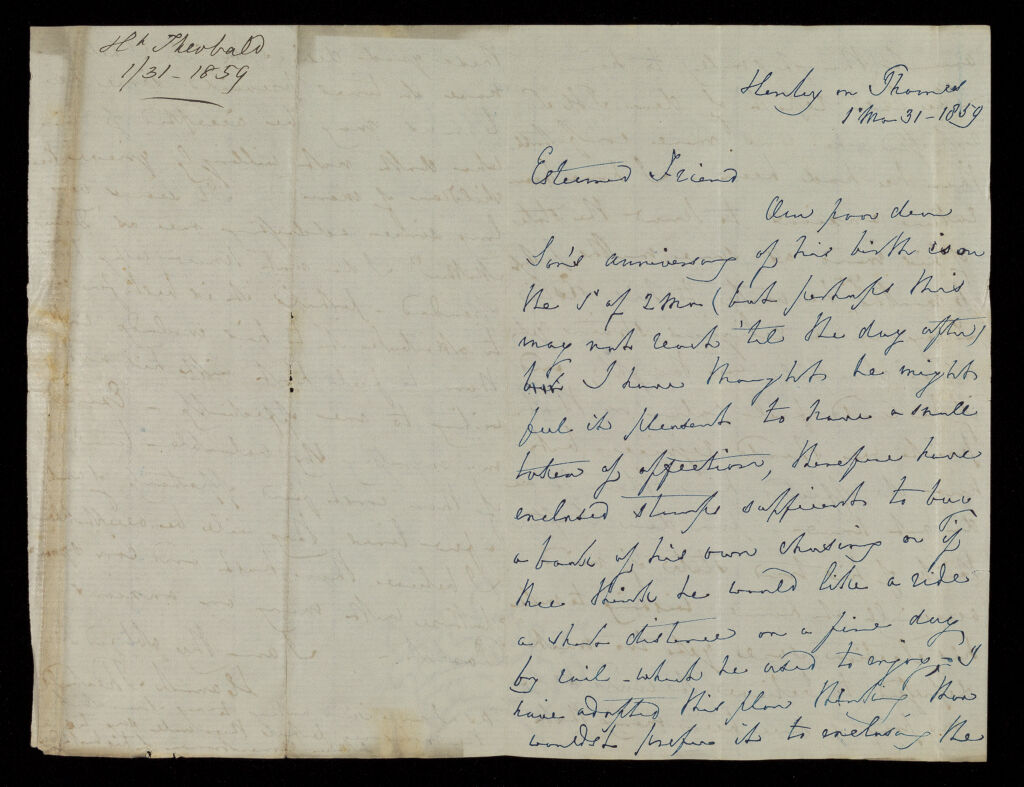 Hh Theobald
1/31-1859
Henley on Thames
1' Mo 31-1859
Esteemed Friend
Our poor dear
Son's anniversary of his birth is on
the 5' of 2 Mo (but perhaps this
may not reach 'til the day after)
I have thought he might
feel it pleasant to have a small
token of affection, therefore have
enclosed stamps sufficient to buy
a book of his own chusing or if
thee think he would like a ride
a short distance on a fine day
by rail - what he used to enjoy, I
have adopted this plan thinking thou
wouldst prefer it to enclosing the